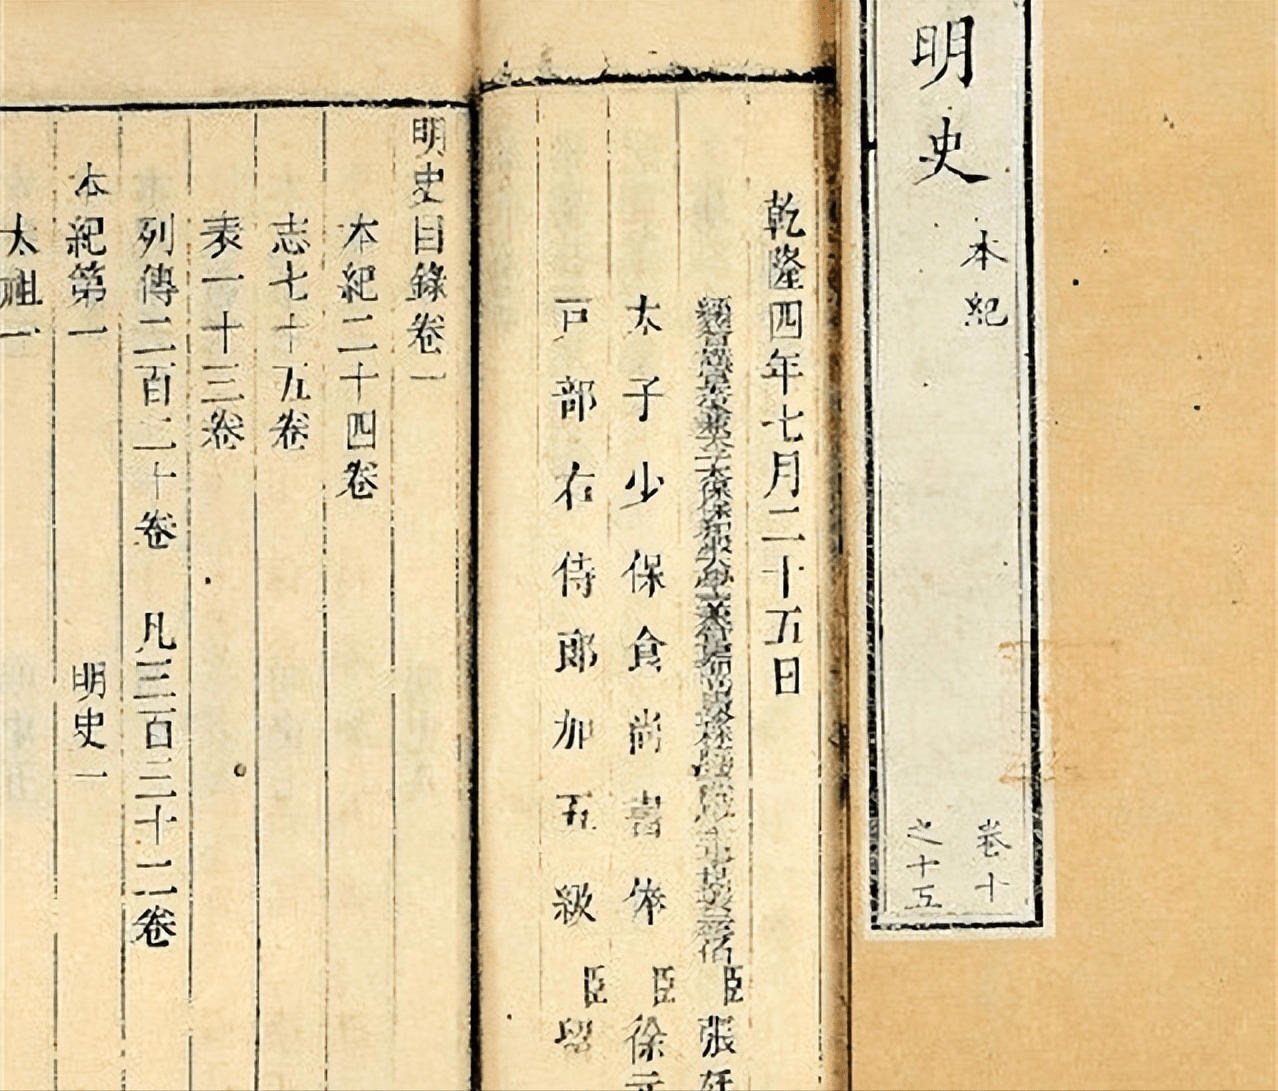 明史
本紀
卷十
之十五
乾隆四年七月二十五日
臣張廷
太子少保食尚書俸臣徐元
戶部右侍郎加五級臣留
明史目錄卷一
本紀二十四卷
志七十五卷
表一十三卷
列傳二百二十卷 凡三百三十二卷
本紀第一 明史一
太祖一